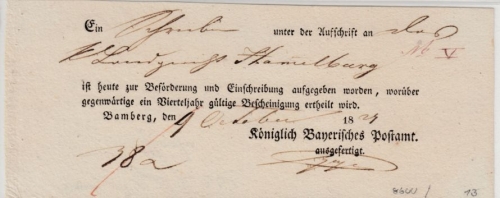 Ein Schreiben unter der Aufschrift an das
K Landgericht Hamelburg
ist heute zur Beförderung und Einschreibung aufgegeben worden, worüber
gegenwärtige ein Vierteljahr gültige Bescheinigung ertheilt wird.
Bamberg, den 9 October 182
Königlich Bayerisches Postamt.
ausgefertigt.
382
13